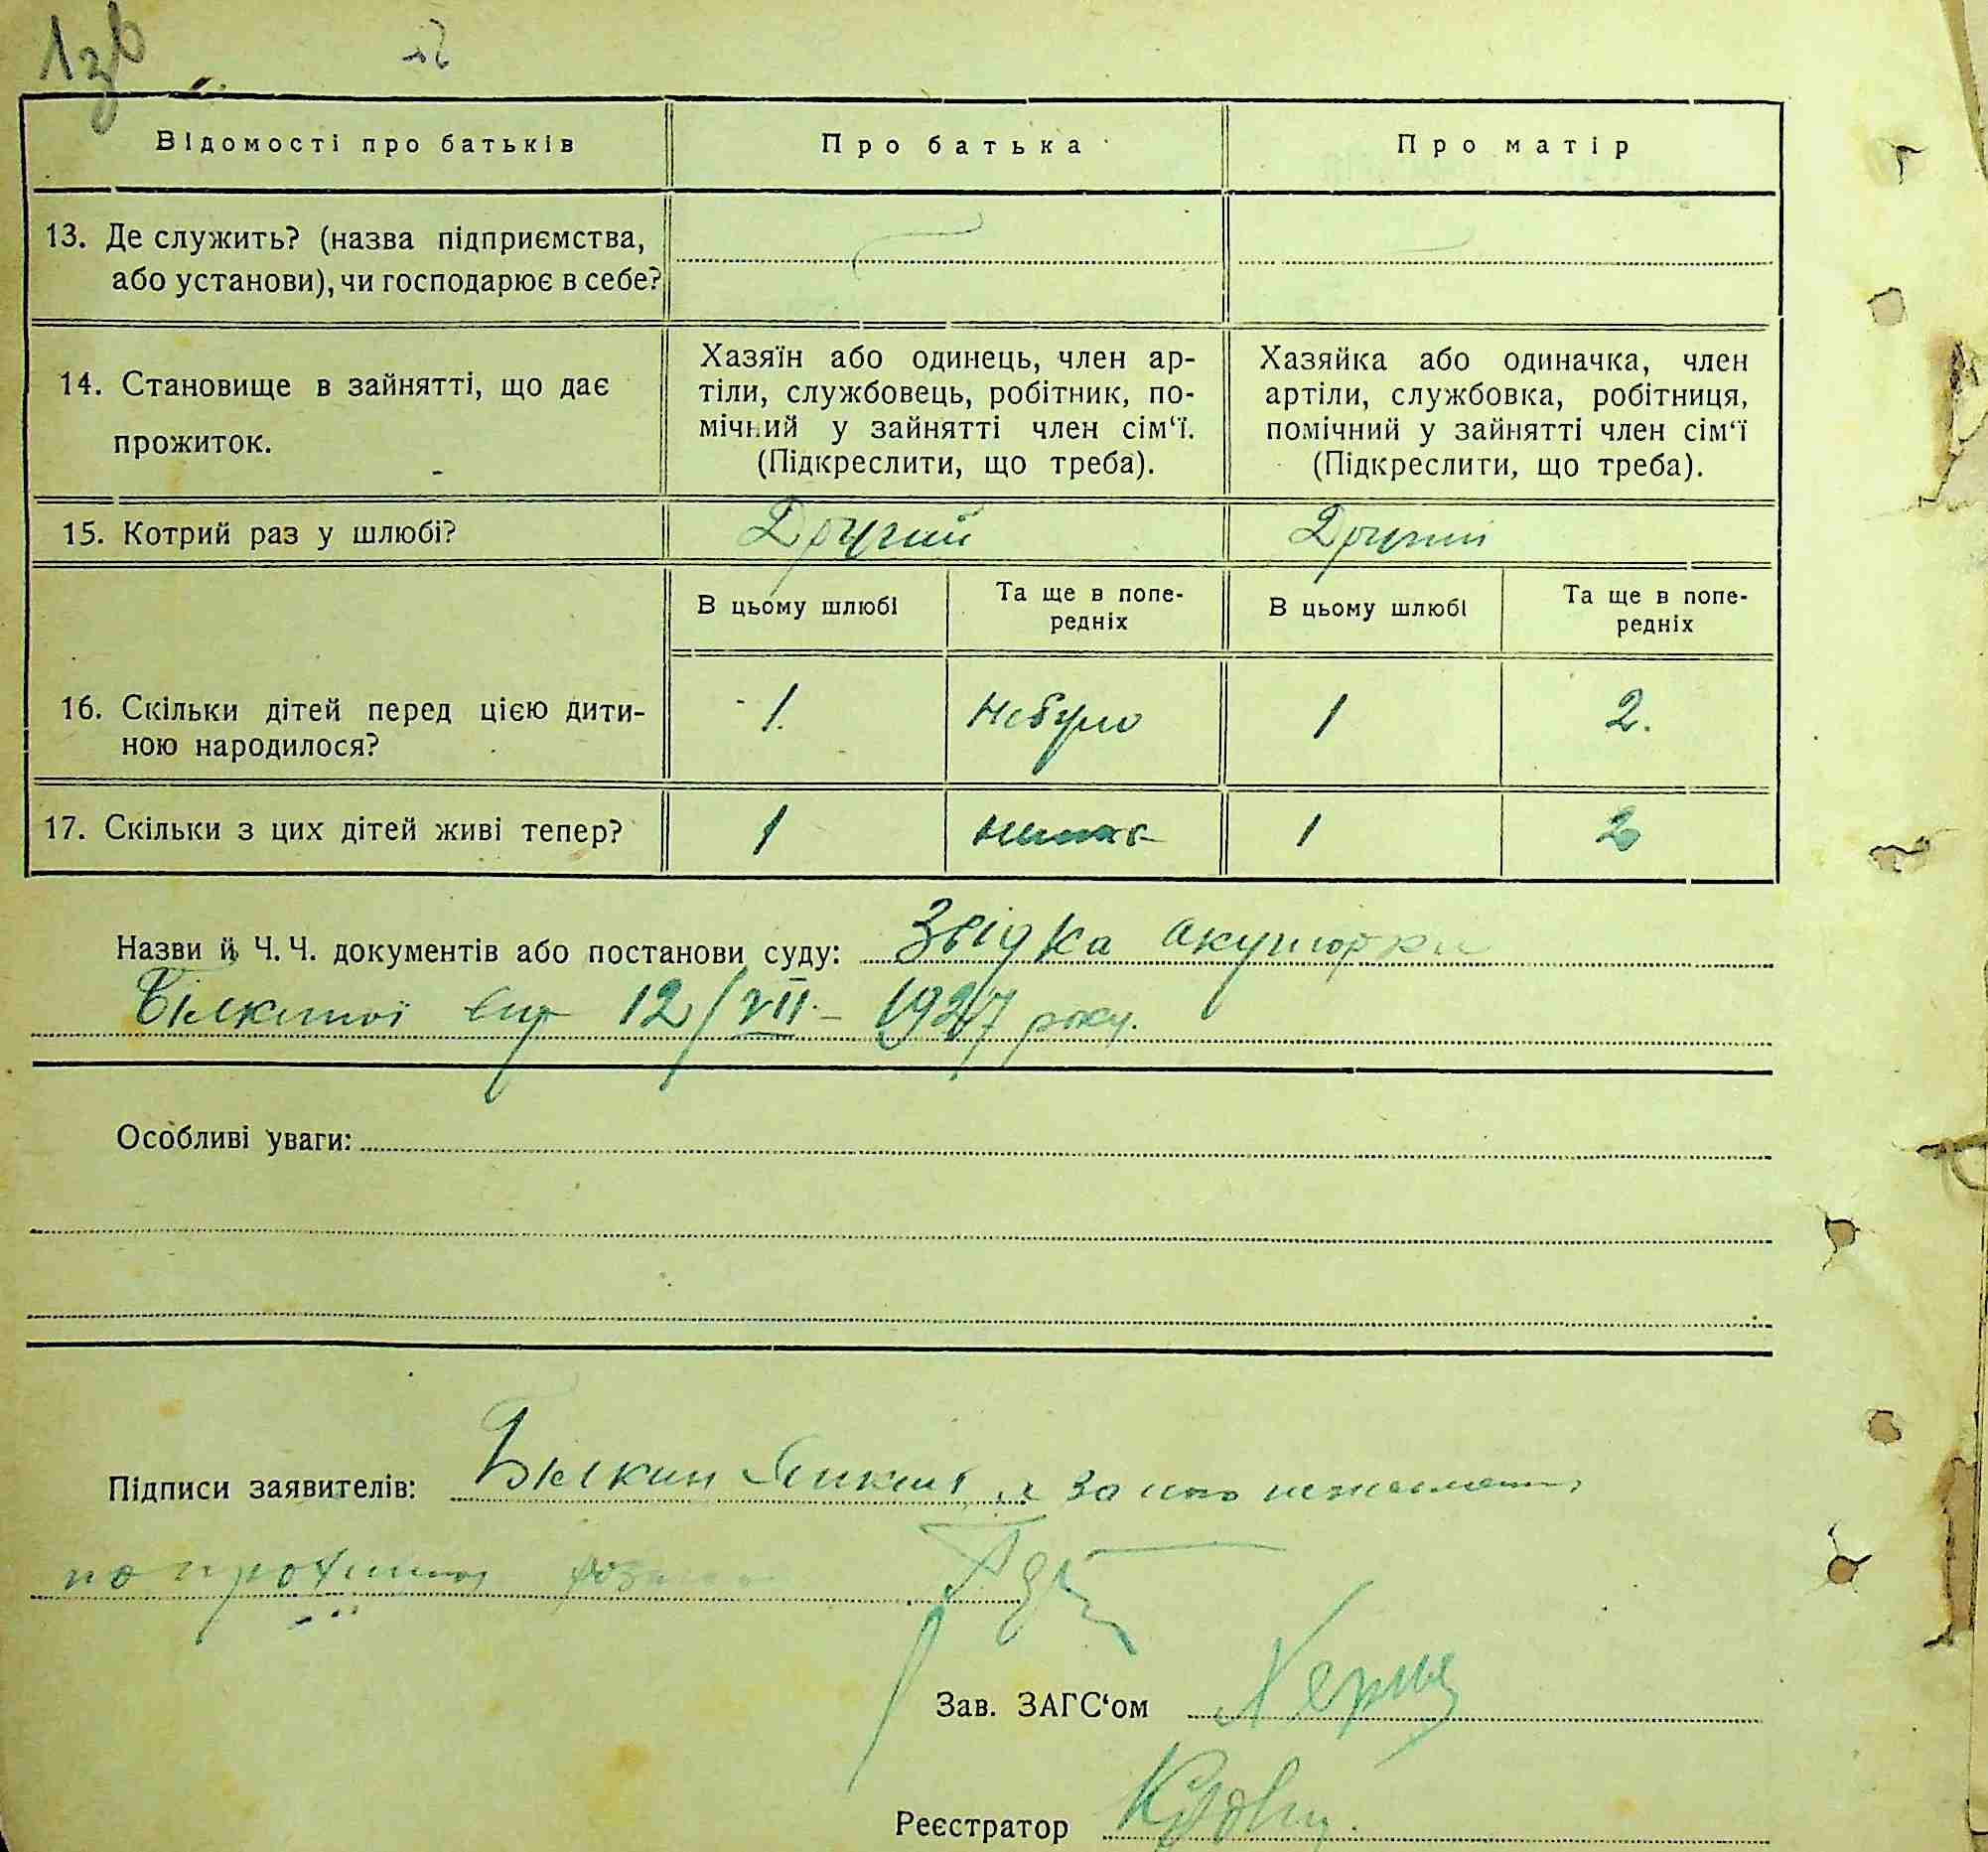 1зв
Відомості про батьків
Про батька
Про матір
13. Де служить? (назва підприємства,
або установи), чи господарює в себе?
14. Становище в зайнятті, що дає
прожиток.
Хазяїн або одинець, член ар-
тіли, службовець, робітник, по-
мічний у зайнятті член сім‘ї.
(Підкреслити, що треба).
Хазяйка або одиначка, член
артіли, службовка, робітниця,
помічний у зайнятті член сім‘ї
(Підкреслити, що треба).
15. Котрий раз у шлюбі?
Другий
Другий
В цьому шлюбі
Та ще в попе-
редніх
В цьому шлюбі
Та ще в попе-
редніх
16. Скільки дітей перед цією дити-
ною народилося?
1.
Небуло
1
2.
17. Скільки з цих дітей живі тепер?
1
1
2
Назви й Ч. Ч. документів або постанови суду: Звідка акушорки
від 12/VII – 1927 року.
Особливі уваги:
Підписи заявителів: а за него
Зав. ЗАГС‘ом
Реєстратор